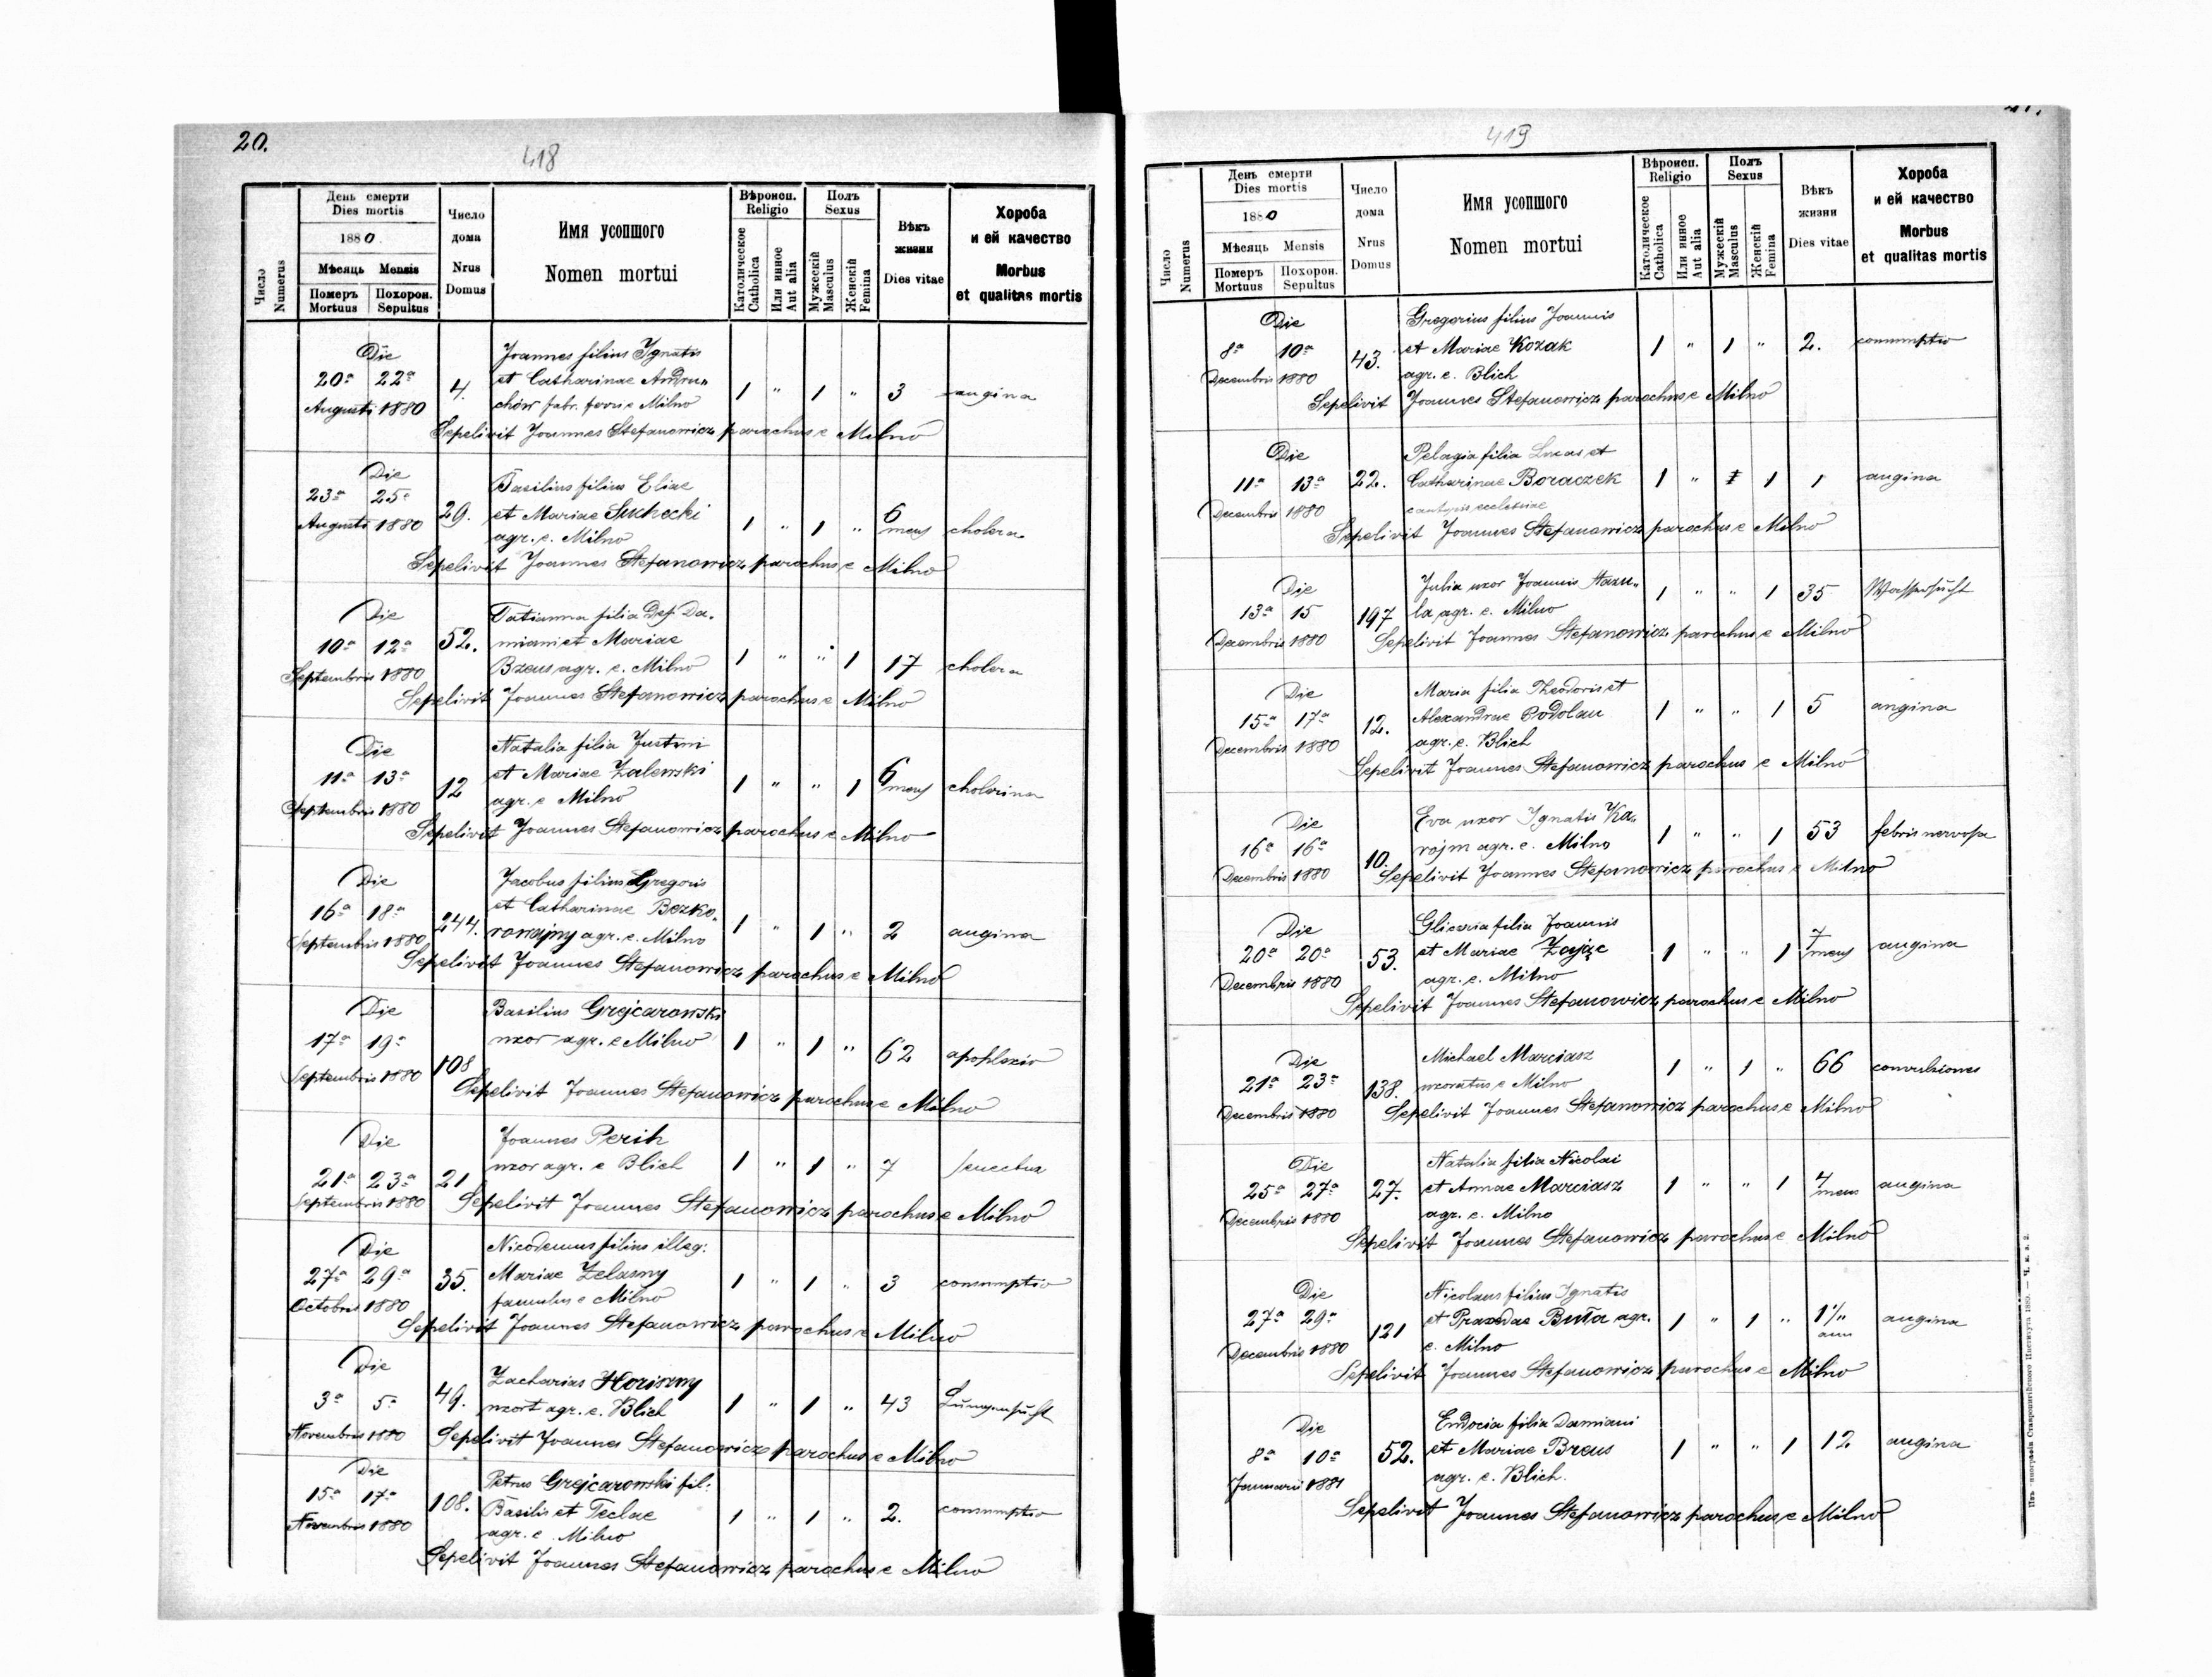 20.
418
Число
Numerus
День смерти
Dies mortis
1880
Мѣсяць Mensis
Померъ
Mortuus
Похорон.
Sepultus
Число
дома
Nrus
Domus
Имя усопшого
Nomen mortui
Вѣроисп.
Religio
Католическое
Catholica
Или инное
Aut alia
Полъ
Sexus
Мужескій
Masculus
Женскій
Femina
Вѣкъ
жизни
Dies vitae
Хороба
и ей качество
Morbus
et qualitas mortis
Die
20a 22a
Augusti 1880
4.
Joannes filius Ignatis
et Catharinae Andru„
chów fabr. ferri e Milno
1 " 1 " 3 angina
Sepelivit Joannes Stefanowicz parochus e Milno
Die
23a 25a
Augusti 1880
29.
Basilius filius Eliae
et Mariae Suchecki
agr. e. Milno
1 " 1 " 6 mens cholera
Sepelivit Joannes Stefanowicz parochus e Milno
Die
10a 12a
Septembris 1880
52.
Tatianna filia Def. Da.
miani et Mariae
Breus agr. e. Milno
1 " " 1 17 cholera
Sepelivit Joannes Stefanowicz parochus e Milno
Die
11a 13a
Septembris 1880
12
Natalia filia Justini
et Mariae Zalewski
agr. e Milno
1 " " 1 6 mens cholerina
Sepelivit Joannes Stefanowicz parochus e Milno
Die
16a 18a
Septembris 1880
244.
Jacobus filius Gregoris
et Catharinae Bezko„
rowajny agr. e. Milno
1 " 1 " 2 angina
Sepelivit Joannes Stefanowicz parochus e Milno
Die
17a 19a
Septembris 1880
108
Basilius Grejcarowski
uxor agr. e Milno
1 " 1 " 62 apoplexio
Sepelivit Joannes Stefanowicz parochus e Milno
Die
21a 23a
Septembris 1880
21
Joannes Perih
uxor agr. e Blich
1 " 1 " 7 senectus
Sepelivit Joannes Stefanowicz parochus e Milno
Die
27a 29a
Octobris 1880
35.
Nicodemus filius illeg:
Mariae Zelasny
famulus e Milno
1 " 1 " 3 consumptio
Sepelivit Joannes Stefanowicz parochus e Milno
Die
3a 5a
Novembris 1880
49.
Zacharias Horiszny
uxort agr. e. Blich
1 " 1 " 43 Lungensucht
Sepelivit Joannes Stefanowicz parochus e Milno
Die
15a 17a
Novembris 1880
108.
Petrus Grejcarowski fil:
Basilis et Teclae
agr. e Milno
1 " 1 " 2. consumptio
Sepelivit Joannes Stefanowicz parochus e Milno
419
Число
Numerus
День смерти
Dies mortis
1880
Мѣсяць Mensis
Померъ
Mortuus
Похорон.
Sepultus
Число
дома
Nrus
Domus
Имя усопшого
Nomen mortui
Вѣроисп.
Religio
Католическое
Catholica
Или инное
Aut alia
Полъ
Sexus
Мужескій
Masculus
Женскій
Femina
Вѣкъ
жизни
Dies vitae
Хороба
и ей качество
Morbus
et qualitas mortis
Die
8a 10a
Decembris 1880
43.
Gregorius filius Joannis
et Mariae Kozak
agr. e. Blich
1 " 1 " 2. consumptio
Sepelivit Joannes Stefanowicz parochus e Milno
Die
11a 13a
Decembris 1880
22.
Pelagia filia Lucas et
Catharinae Boraczek
ecclesiae
1 " 1 1 angina
Sepelivit Joannes Stefanowicz parochus e Milno
Die
13a 15
Decembris 1880
197
Julia uxor Joannis Hazu„
la agr. e. Milno
1 " " 1 35 Wassersucht
Sepelivit Joannes Stefanowicz parochus e Milno
Die
15a 17a
Decembris 1880
12.
Maria filia Theodoris et
Alexandrae Podolan
agr. e. Blich
1 " " 1 5 angina
Sepelivit Joannes Stefanowicz parochus e Milno
Die
16a 16a
Decembris 1880
10.
Eva uxor Ignatis Ka„
rojm agr. e. Milno
1 " " 1 53 febris nervosa
Sepelivit Joannes Stefanowicz parochus e Milno
Die
20a 20a
Decembris 1880
53.
Gliceria filia Joannis
et Mariae Zając
agr. e. Milno
1 " " 1 7 mens angina
Sepelivit Joannes Stefanowicz parochus e Milno
Die
21a 23a
Decembris 1880
138.
Michael Marciasz
uxoratus e Milno
1 " 1 " 66 convulsiones
Sepelivit Joannes Stefanowicz parochus e Milno
Die
25a 27a
Decembris 1880
27.
Natalia filia Nicolai
et Annae Marciasz
agr. e. Milno
1 " " 1 4 mens angina
Sepelivit Joannes Stefanowicz parochus e Milno
Die
27a 29a
Decembris 1880
121
Nicolaus filius Ignatis
et Praxedae Buta agr.
e. Milno
1 " 1 " ann angina
Sepelivit Joannes Stefanowicz parochus e Milno
Die
8a 10a
Januarii 1881
52.
Eudocia filia Damiani
et Mariae Breus
agr. e. Blich.
1 " " 1 12 angina
Sepelivit Joannes Stefanowicz parochus e Milno